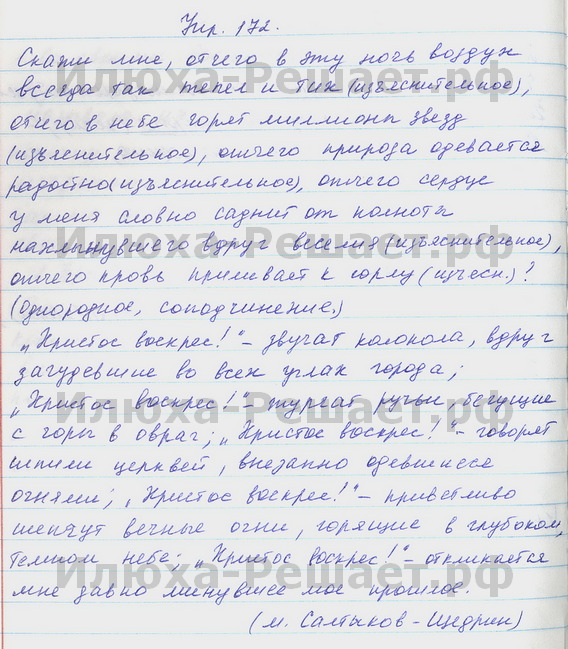 Упр. 172.
Скажи мне, отчего в эту ночь воздух
всегда так тепел и тих (изъяснительное),
отчего в небе горят миллионы звезд
(изъяснительное), отчего природа одевается
радостно (изъяснительное), отчего сердце
у меня словно саднит от полноты
нахлынувшего вдруг веселия (изъяснительное),
отчего кровь приливает к горлу (изъясн.)?
(Однородное, соподчинение.)
„Христос воскрес!“ – звучат колокола, вдруг
загудевшие во всех углах города;
„Христос воскрес!“ – журчат ручьи, бегущие
с горы в овраг; „Христос воскрес!“ – говорят
шпили церквей, внезапно одевшиеся
огнями; „Христос воскрес!“ – приветливо
шепчут вечные огни, горящие в глубоком,
темном небе; „Христос воскрес!“ – откликается
мне давно минувшее мое прошлое.
(М. Салтыков-Щедрин)
Илюха-Решает.рф
Илюха-Решает.рф
Илюха-Решает.рф
Илюха-Решает.рф
Илюха-Решает.рф